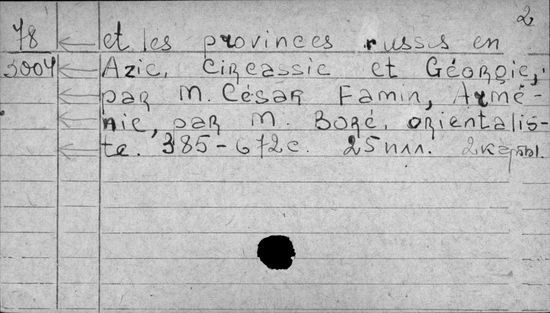 2
78 et les provinces russes en
3004 Azie, Circassie et Géorgie,
par M. César Famin, Armé-
nie, par M. Boré, orientalis-
te. 385-672с. 25илл. 2карты.